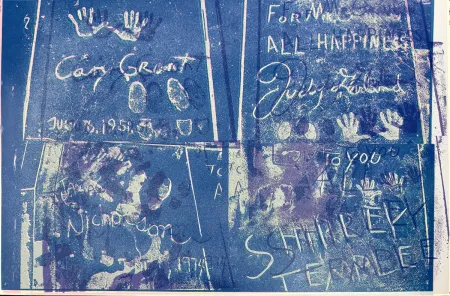 Cary Grant
JULY 16, 1951
FOR MR.
ALL HAPPINESS
Judy Garland
Nicholson
1974
TO YOU
SHIRLEY
TEMPLE